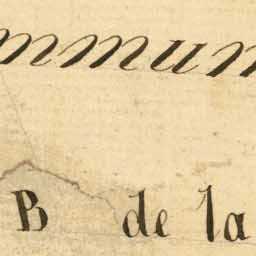 mmun
B de la